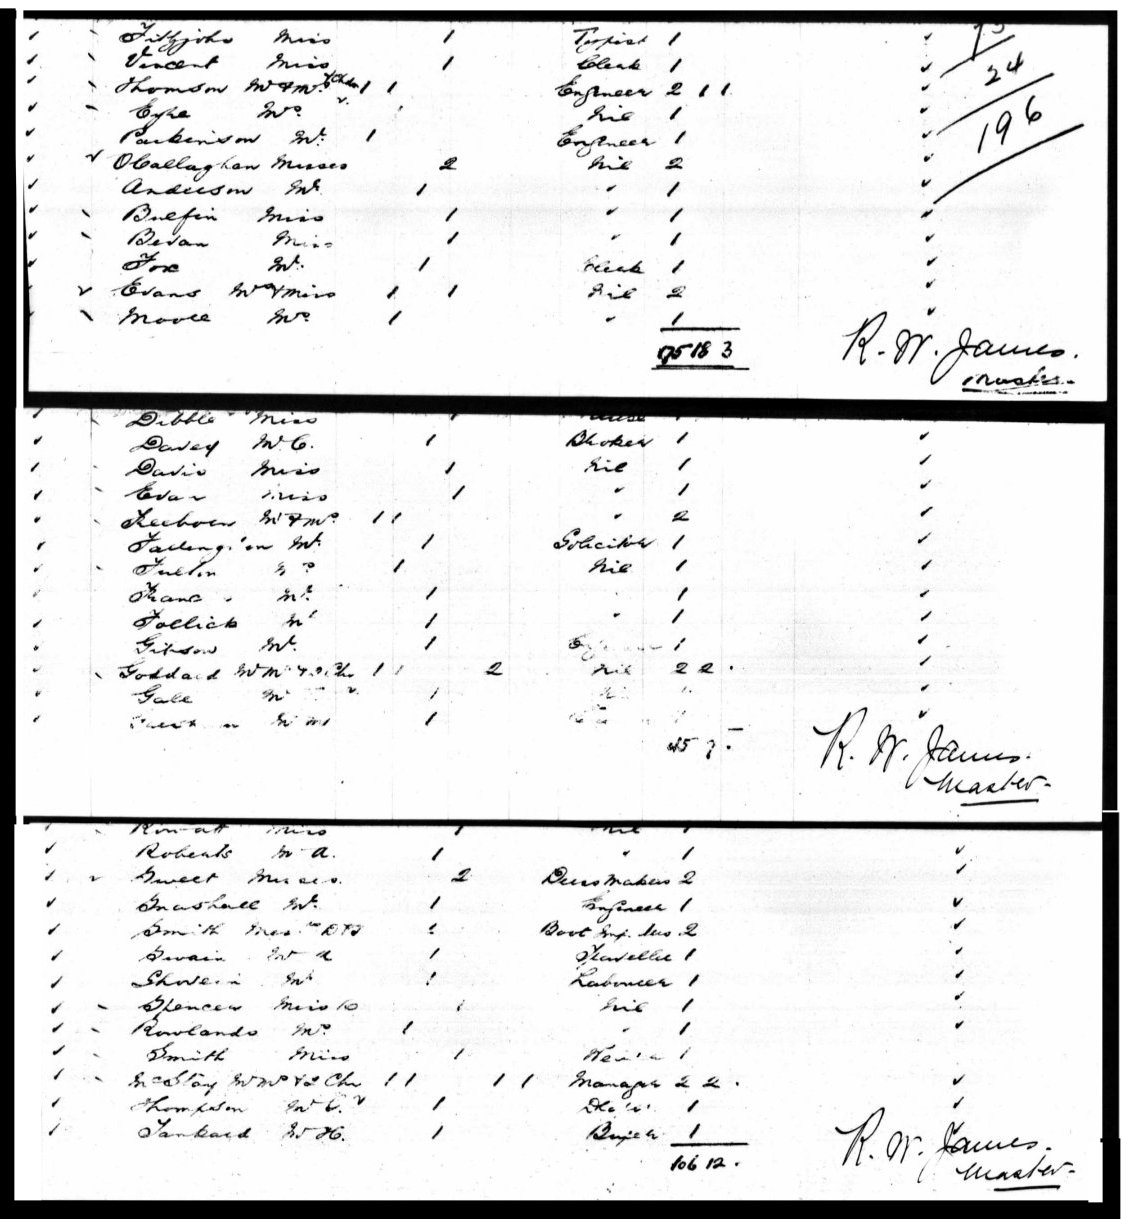 Fitzjohn Miss 1 Typist 1
Vincent Miss 1 Clerk 1
Thomson Mr & Mrs & Chdn 1 1 Engineer 2 1 1
24
Eyre Mrs 1 Nil 1
196
Parkinson Mr. 1 Engineer 1
O'Callaghan Misses 2 Nil 2
Anderson Mr. 1 " 1
Bulfin Miss 1 " 1
Bevan Miss 1 " 1
Fox Mr. 1 Clerk 1
Evans Mrs & Miss 1 1 Nil 2
Moore Mrs 1 " 1
18 3
R. W. James.
Master.
Dibble Miss 1 1
Davey Mr. C. 1 Broker 1
Davis Miss 1 Nil 1
Evan Miss 1 " 1
Mr & Mrs 1 1 " 2
Mr. 1 Solicitor 1
Fulton Mrs 1 Nil 1
Mr. 1 1
Follick Mr 1 " 1
Gibson Mr. 1 1
Goddard Mr Mrs & 2 Chn 1 1 2 Nil 2 2
Gale Mr 1
1
45
R. W. James.
Master.
Miss 1 Nil 1
Roberts Mr A. 1 " 1
Sweet Misses. 2 Dressmakers 2
Marshall Mr. 1 Engineer 1
Smith 2 Boot 2
Swain Mr 1 Traveller 1
Mr 1 Labourer 1
Spencer Miss 1 Nil 1
Rowlands Mrs 1 " 1
Smith Miss 1 1
McStay Mr Mrs & 2 Chn 1 1 1 1 Manager 2 2
Thompson Mr C. 1 1
Tankard Mr H. 1 Buyer 1
106 12.
R. W. James.
Master.